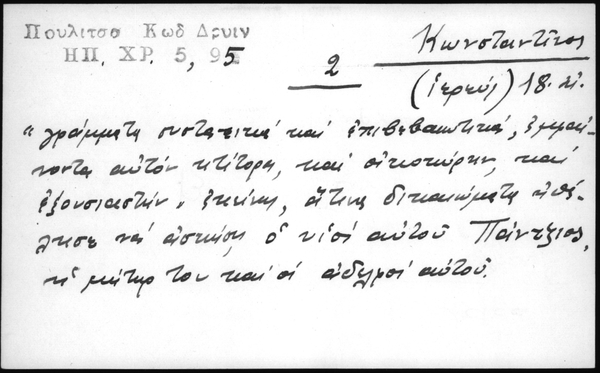 Πουλιτσα Κωδ Δρυιν
ΗΠ. ΧΡ. 5, 95
2
Κωνσταντῖνος
(ἱερεύς) 18. αἰ.
"γράμματα συστατικά καὶ ἐπιβεβαιωτικά, ἐμφαί-
νοντα αὐτόν κτίτορα, καὶ οἰκοκύρην, καὶ
ἐξουσιαστήν" ἐκείνης, ἅτινα δικαιώματα ἠθέ-
λησε νά ἀσκήσῃ ὁ υἱός αὐτοῦ Πάντζιος,
ἡ μήτηρ του καὶ οἱ ἀδελφοί αὐτοῦ.